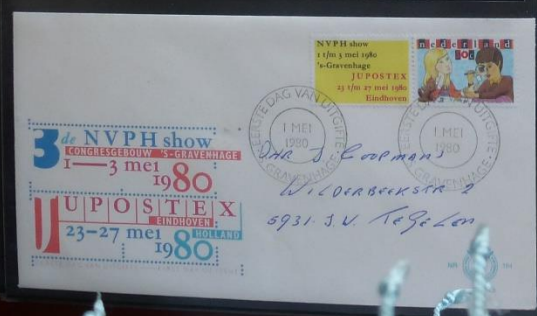 NVPH show
1 t/m 3 mei 1980
's-Gravenhage
JUPOSTEX
23 t/m 27 mei 1980
Eindhoven
nederland
EERSTE DAG VAN UITGIFTE
1 MEI
1980
'S-GRAVENHAGE
EERSTE DAG VAN UITGIFTE
1 MEI
1980
'S-GRAVENHAGE
3de NVPH show
CONGRESGEBOUW 'S-GRAVENHAGE
1—3 mei
1980
JUPOSTEX
EINDHOVEN
23-27 mei HOLLAND
1980
Dhr J Coopmans
Wilderbeekstr 2
5931-J.V. Tegelen